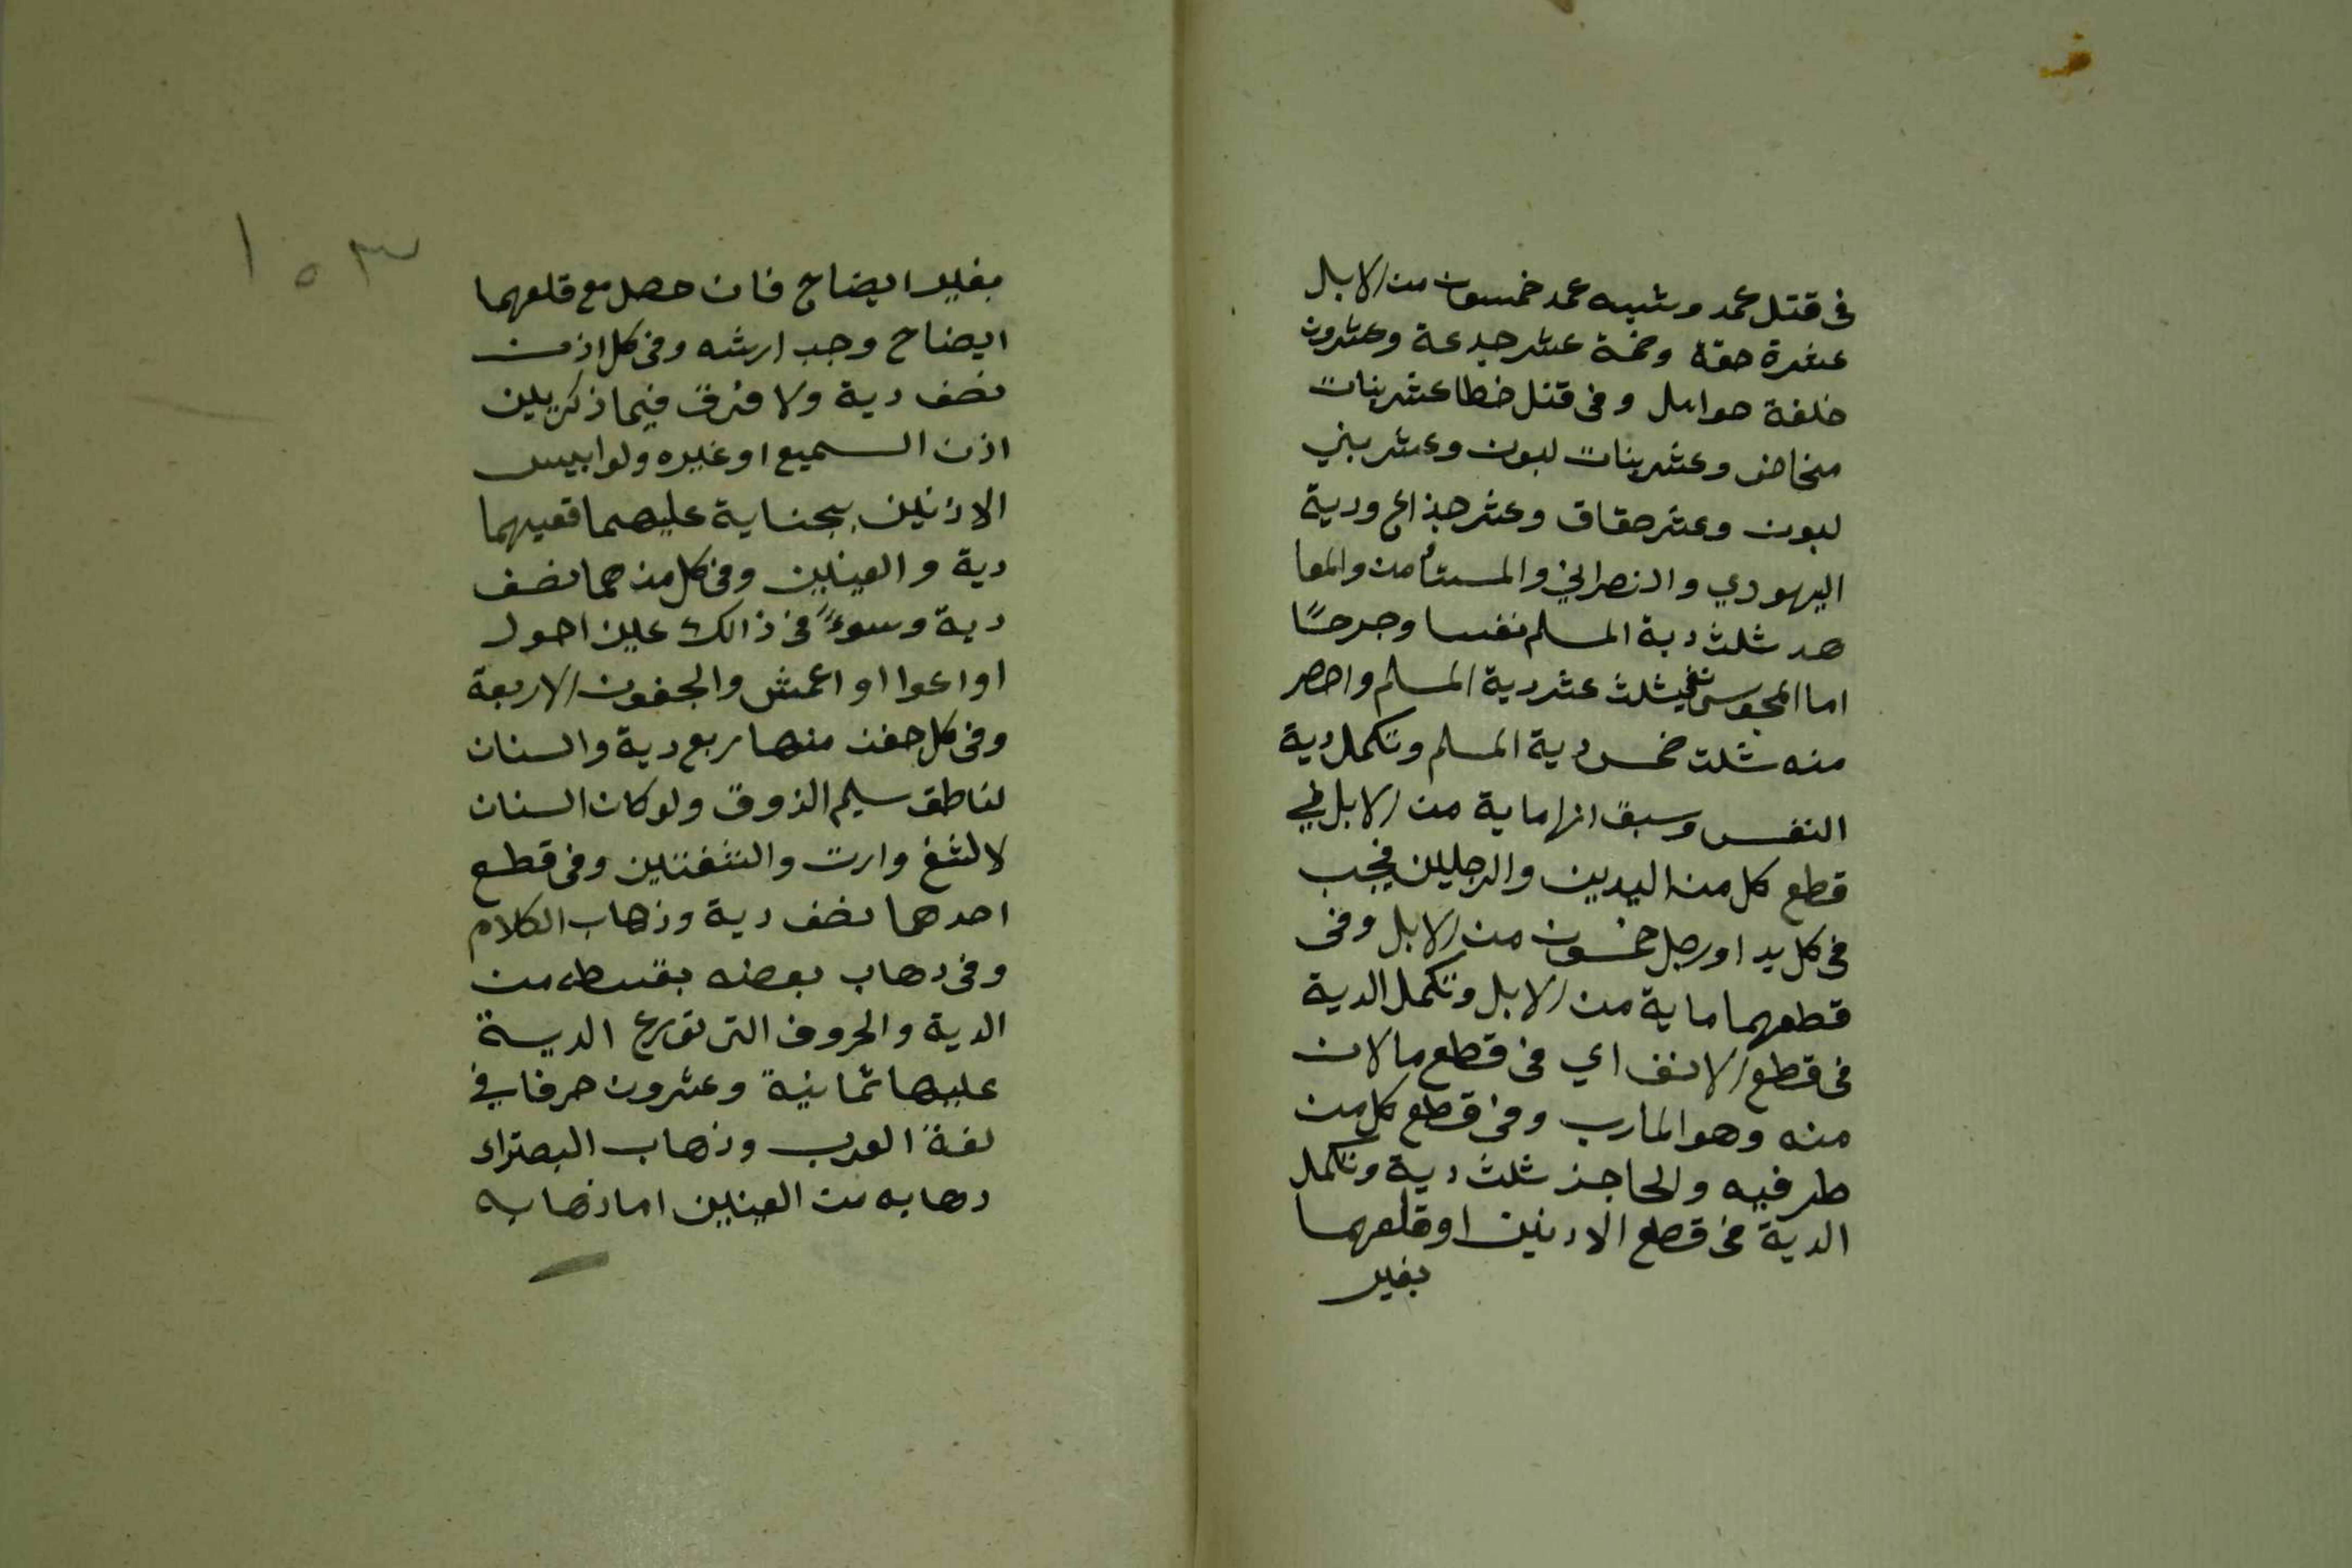 فى قتل عمد وشبه عمد خمسون من الابل
عشرة حقة وخمسة عشر جدعة وعشرون
خلفة حوامل وفى قتل خطا عشر بنات
مخاض وعشر بنات لبون وعشر بني
لبون وعشر حقاق وعشر جذاع ودية
اليهودي والنصراني والمستأمن والمعا
هد ثلث دية المسلم نفسا وجرحًا
اما المجوسى ففيه ثلث عشر دية المسلم واخصر
منه ثلث خمس دية المسلم وتكمل دية
النفس وسبق انها ماية من الابل في
قطع كل من اليدين والرجلين فيجب
فى كل يد او رجل خمسون من الابل وفى
قطعهما ماية من الابل وتكمل الدية
فى قطع الانف اي فى قطع ما لان
منه وهو المارب وفى قطع كل من
طرفيه والحاجز ثلث دية وتكمل
الدية فى قطع الادنين او قلعهما
بغير
١٥٣
بغير ايضاح فان حصل مع قلعهما
ايضاح وجب ارشه وفى كل اذن
نصف دية ولا فرق فيما ذكر بين
اذن السميع او غيره ولو ابيس
الاذنين بجناية عليهما ففيهما
دية والعينين وفى كل منهما نصف
دية وسوءً فى ذالك عين احول
او اعوا او اعمش والجفون الاربعة
وفى كل جفن منها ربع دية والسنان
لناطق سليم الذوق ولو كان السنان
لالثغ وارت والشفتين وفى قطع
احدهما نصف دية وذهاب الكلام
وفى دهاب بعضه بقسطه من
الدية والحروف التى توزع الدية
عليها ثمانية وعشرون حرفا في
لغة العرب وذهاب البصر اى
دهابه من العينين اما ذهابه